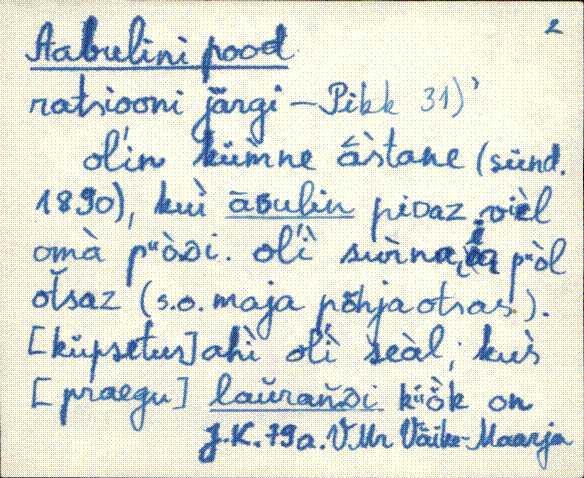 2
Aabulini pood
ratsiooni järgi – Pikk 31)'
olin kümne àstane (sünd.
1890), kui āʙulin piᴅaz vièl
omà pᵘòᴅi. olì
pᵘòl
otsaz (s.o. maja põhjaotsas).
[küpsetus]ahì olì seàl, kus
[praegu] laŭranᴅi kᵘ̈òk on
J.K. 79a. VMr Väike-Maarja